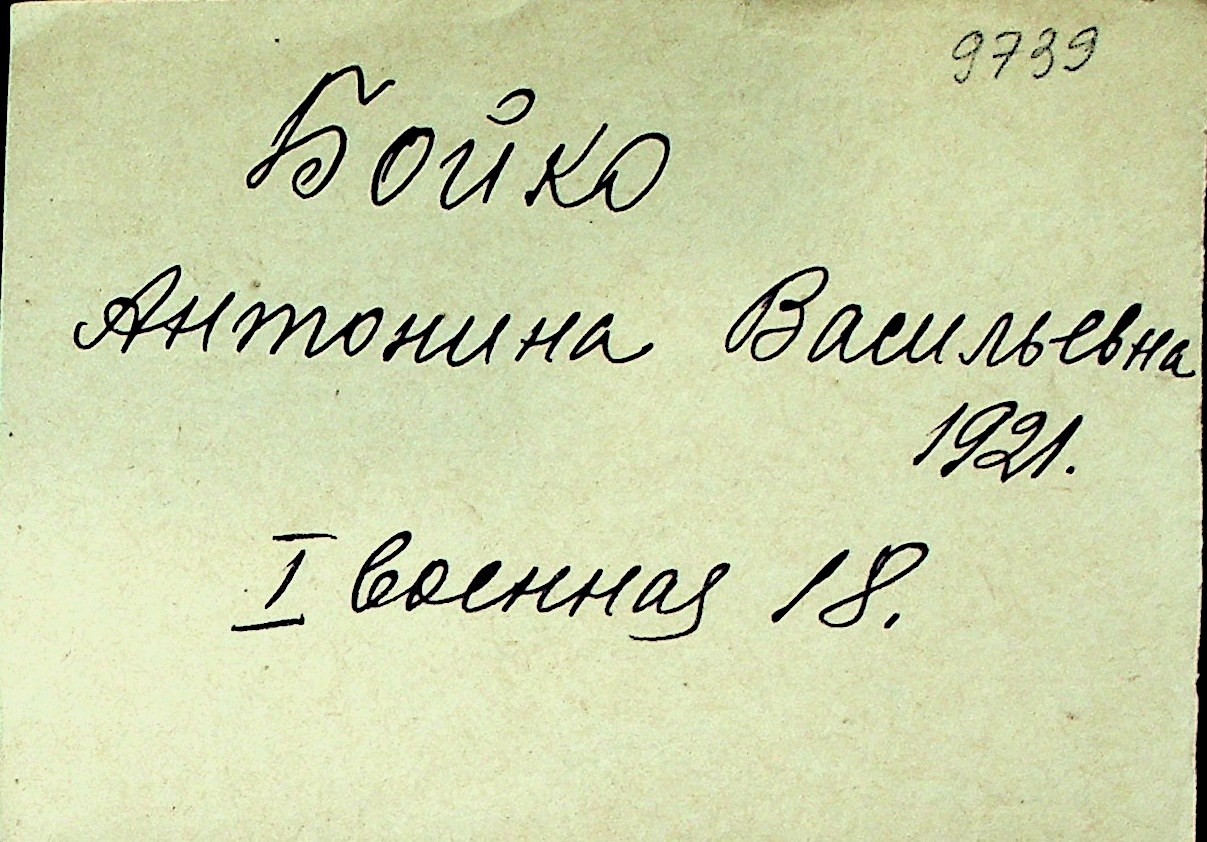 9739
Бойко
Антонина Васильевна
1921.
I военная 18.